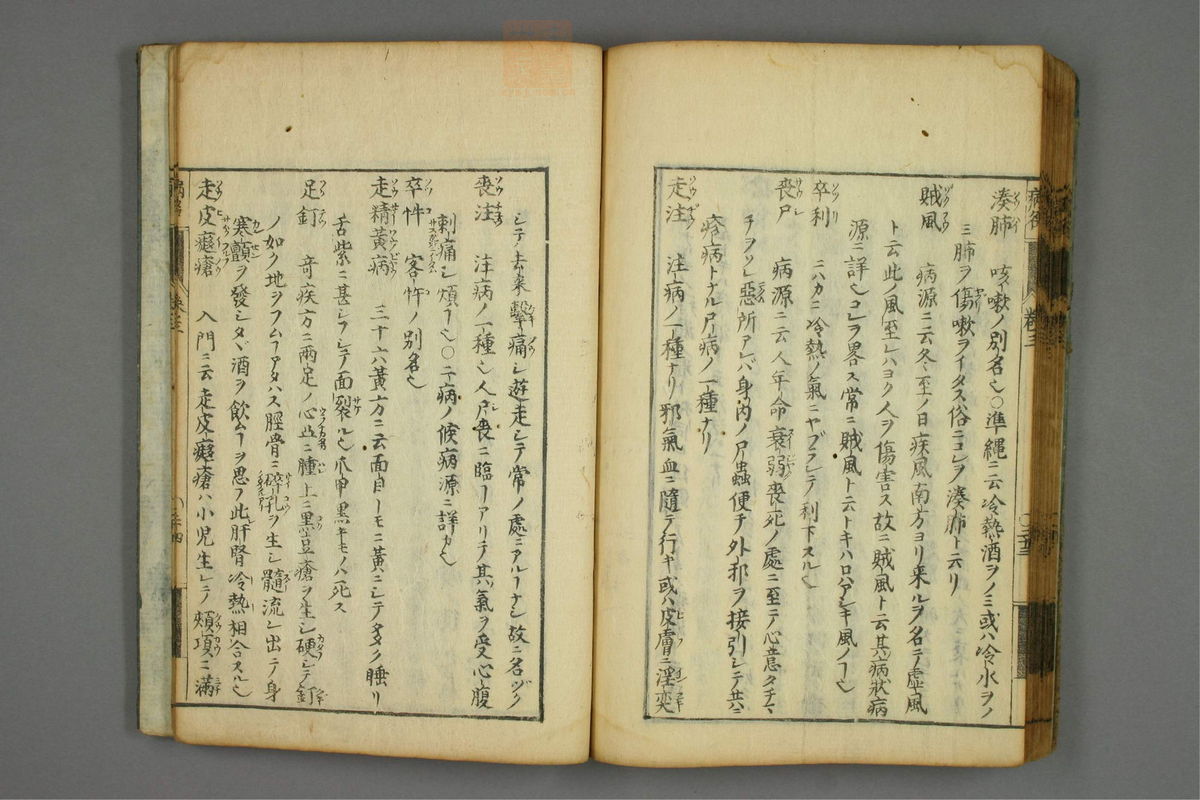 湊肺 咳嗽ノ別名也○準縄ニ云冷熱酒ヲノミ或ハ冷水ヲノ
ミ肺ヲ傷嗽ヲイタス俗ニコレヲ湊肺ト云リ
賊風 病源ニ云冬至ノ日疾風南方ヨリ来ルヲ名テ虚風
ト云此ノ風至レハヨク人ヲ傷害ス故ニ賊風ト云其病状病
源ニ詳也コレヲ畧ス常ニ賊風ト云トキハ口アシキ風ノ也
卒利 ニハカニ冷熱ノ氣ニヤブラレテ利下スル也
喪尸 病源ニ云人年命衰弱喪死ノ處ニ至テ心意タチマ
チヲソレ惡所アレバ身内ノ尸蟲便チ外邪ヲ接引シテ共ニ
疹病トナル尸病ノ一種ナリ
走注 注病ノ一種ナリ邪氣血ニ隨テ行キ或ハ皮膚ニ淫奕
シテ去来擊痛シ遊走シテ常ノ處ニアルヿナシ故ニ名ヅク
喪注 注病ノ一種也人尸喪ニ臨ヿアリテ其氣ヲ受心腹
刺痛シ煩ヿ也○二病ノ候病源ニ詳カ也
卒忤 客忤ノ別名也
走精黃病 三十六黃方ニ云面目トモニ黃ニシテ多ク睡リ
舌紫ニ甚シフシテ面裂ル也爪甲黒キモノハ死ス
足釘 奇疾方ニ兩足ノ心凸ニ腫上ニ黒豆瘡ヲ生シ硬シテ釘
ノ如ク地ヲフムヿアタハス脛骨ニ碎孔ヲ生シ髓流レ出テ身
寒顫ヲ發シタヾ酒ヲ飲ムヿヲ思フ此肝腎冷熱相合スル也
走皮𤻤瘡 入門ニ云走皮𤻤瘡ハ小児生レテ頰項ニ滿
卷三